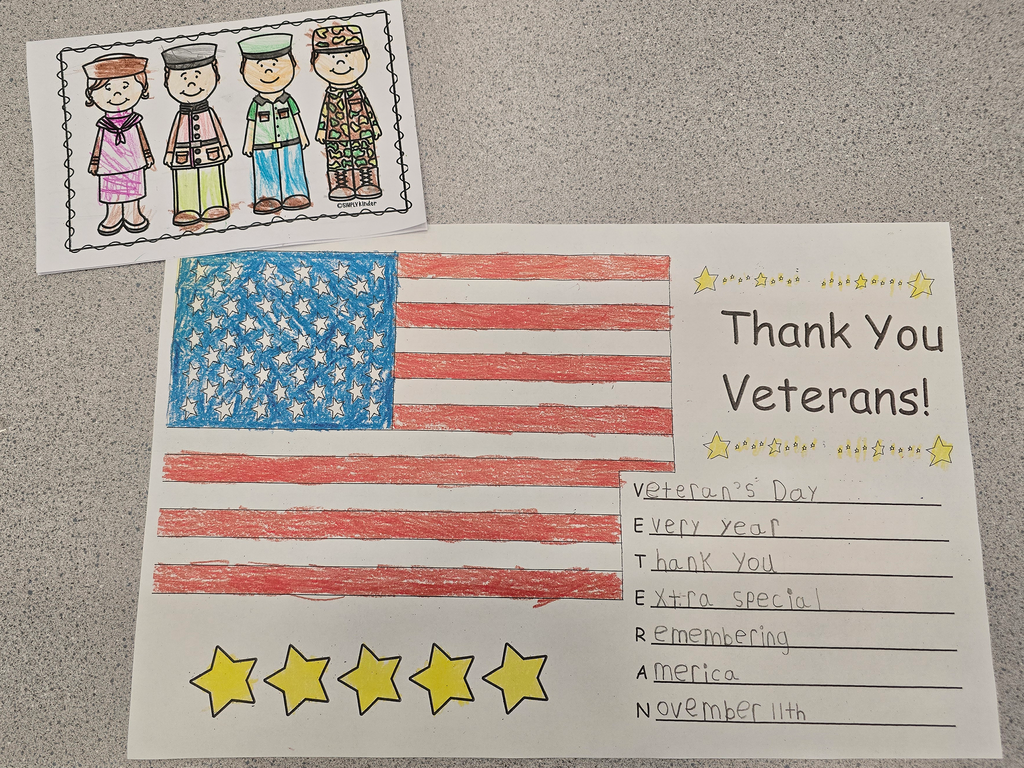 ©SIMPLYkinder
Thank You
Veterans!
Veteran's Day
Every year
Thank you
Extra special
Remembering
America
November 11th